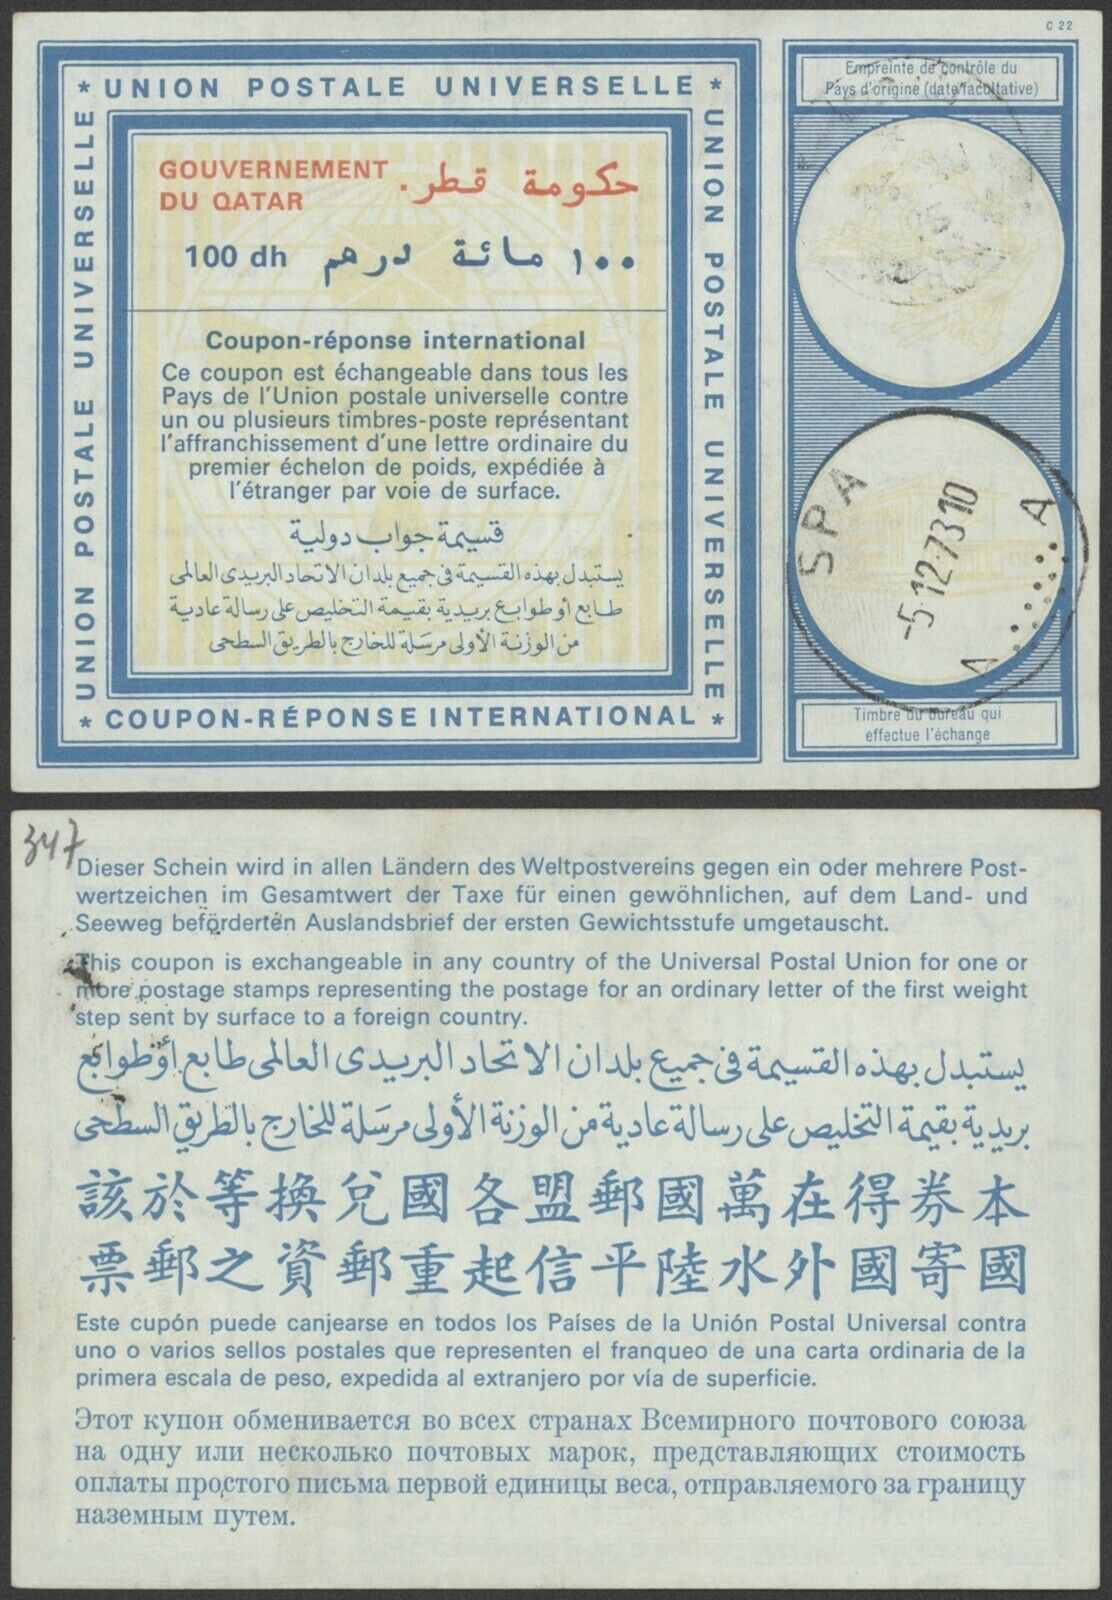 C 22
* UNION POSTALE UNIVERSELLE *
UNION POSTALE UNIVERSELLE
UNION POSTALE UNIVERSELLE
GOUVERNEMENT
DU QATAR
حكومة قطر.
100 dh
١٠٠ مائة درهم
Coupon-réponse international
Ce coupon est échangeable dans tous les
Pays de l'Union postale universelle contre
un ou plusieurs timbres-poste représentant
l'affranchissement d'une lettre ordinaire du
premier échelon de poids, expédiée à
l'étranger par voie de surface.
قسيمة جواب دولية
يستبدل بهذه القسيمة في جميع بلدان الاتحاد البريدى العالمى
طابع أو طوابع بريدية بقيمة التخليص على رسالة عادية
من الوزنة الأولى مرسَلة للخارج بالطريق السطحى
* COUPON-RÉPONSE INTERNATIONAL *
Empreinte de contrôle du
Pays d'origine (date facultative)
SPA
-5-12-73 10
A A
Timbre du bureau qui
effectue l'échange
347
Dieser Schein wird in allen Ländern des Weltpostvereins gegen ein oder mehrere Post-
wertzeichen im Gesamtwert der Taxe für einen gewöhnlichen, auf dem Land- und
Seeweg beförderten Auslandsbrief der ersten Gewichtsstufe umgetauscht.
This coupon is exchangeable in any country of the Universal Postal Union for one or
more postage stamps representing the postage for an ordinary letter of the first weight
step sent by surface to a foreign country.
يستبدل بهذه القسيمة في جميع بلدان الاتحاد البريدى العالمى طابع أو طوابع
بريدية بقيمة التخليص على رسالة عادية من الوزنة الأولى مرسَلة للخارج بالطريق السطحى
本券得在萬國郵盟各國兌換等於該
國寄國外水陸平信起重郵資之郵票
Este cupón puede canjearse en todos los Países de la Unión Postal Universal contra
uno o varios sellos postales que representen el franqueo de una carta ordinaria de la
primera escala de peso, expedida al extranjero por vía de superficie.
Этот купон обменивается во всех странах Всемирного почтового союза
на одну или несколько почтовых марок, представляющих стоимость
оплаты простого письма первой единицы веса, отправляемого за границу
наземным путем.